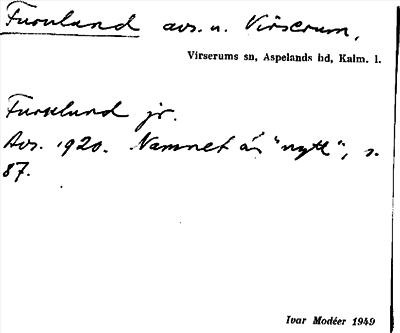 Furuland avs. u. Virserum.
Virserums sn, Aspelands hd, Kalm. l.
Furulund jr.
Avs. 1920. Namnet är "nytt", s.
87.
Ivar Modéer 1949